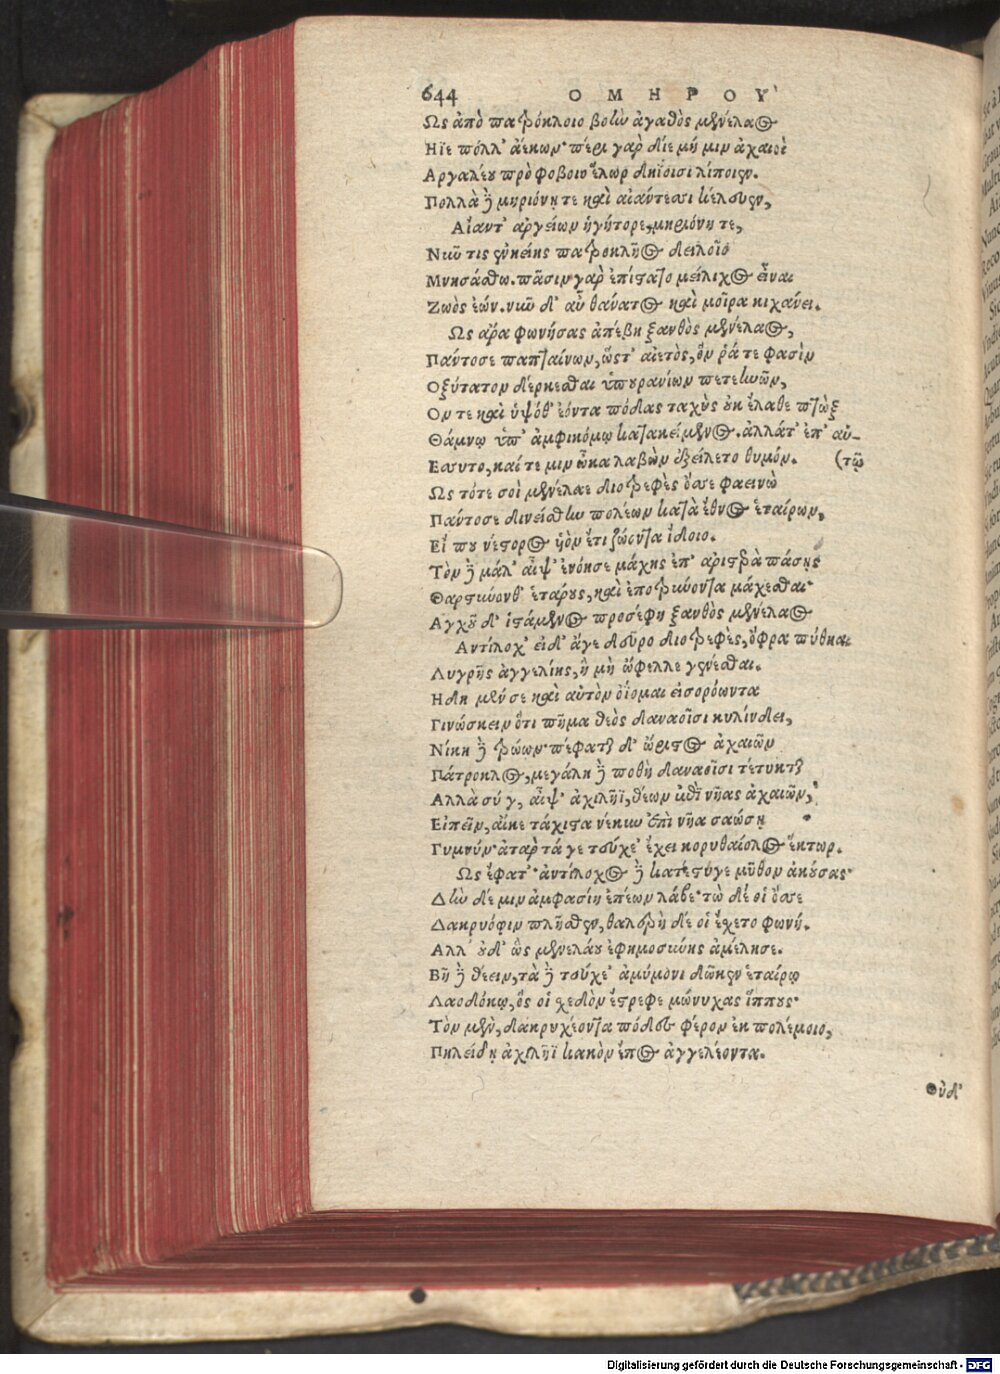 644 ΟΜΗΡΟΥ
Ως ἀπὸ πατρόκλοιο βοὴν ἀγαθὸς μενέλαος
Ηϊε πόλλ' ἀέκων· πέρι γαρ δίε μή μιν ἀχαιοὶ
Αργαλέου πρὸ φόβοιο ἕλωρ δηΐοισι λίποιεν.
Πολλὰ δὲ μηριόνῃ τε καὶ αἰάντεσσι κέλευεν,
Αἴαντ' ἀργείων ἡγήτορε, μηριόνη τε,
Νῦν τις ἐνηείης πατροκλῆος δειλοῖο
Μνησάσθω. πᾶσιν γαρ ἐπίστατο μείλιχος εἶναι
Ζωὸς ἐών. νῦν δ' αὖ θάνατος καὶ μοῖρα κιχάνει.
Ως ἄρα φωνήσας ἀπέβη ξανθὸς μενέλαος,
Πάντοσε παπταίνων, ὥστ' αἰετὸς, ὅν ῥά τε φασὶν
Οξύτατον δέρκεσθαι ὑπουρανίων πετεηνῶν,
Ον τε καὶ ὑψόθ' ἐόντα πόδας ταχὺς οὐκ ἔλαθε πτὼξ
Θάμνῳ ὑπ' ἀμφικόμῳ κατακείμενος. ἀλλάτ' ἐπ' αὐ-
Εσσυτο, καί τε μιν ὦκα λαβὼν ἐξείλετο θυμόν. (τῷ
Ως τότε σοὶ μενέλαε διοτρεφὲς ὄσσε φαεινὼ
Πάντοσε δινείσθην πολέων κατὰ ἔθνος ἑταίρων,
Εἴ που νέστορος ἡὸν ἔτι ζώοντα ἴδοιο.
Τὸν δὲ μάλ' αἶψ' ἐνόησε μάχης ἐπ' ἀριστερὰ πάσης
Θαρσύνονθ' ἑτάρους, καὶ ἐποτρύνοντα μάχεσθαι·
Αγχοῦ δ' ἱστάμενος προσέφη ξανθὸς μενέλαος
Αντίλοχ' εἰδ' ἄγε δεῦρο διοτρεφὲς, ὄφρα πύθηαι
Λυγρῆς ἀγγελίης, ἣ μὴ ὤφελλε γενέσθαι.
Ηδη μέν σε καὶ αὐτὸν ὀΐομαι εἰσορόωντα
Γινώσκειν ὅτι πῆμα θεὸς δαναοῖσι κυλίνδει,
Νίκη δὲ τρώων· πέφαται δ' ὤριστος ἀχαιῶν
Πάτροκλος, μεγάλη δὲ ποθὴ δαναοῖσι τέτυκται
Αλλὰ σύ γ, αἶψ' ἀχιλῆϊ, θέων ἐπὶ νῆας ἀχαιῶν,
Εἰπεῖν, αἴκε τάχιστα νέκυν ἐπὶ νῆα σαώσῃ
Γυμνόν· ἀτὰρ τά γε τεύχε' ἔχει κορυθαίολος ἕκτωρ.
Ως ἔφατ'· ἀντίλοχος δὲ κατέστυγε μῦθον ἀκούσας·
Δὴν δέ μιν ἀμφασίη ἐπέων λάβε· τὼ δέ οἱ ὄσσε
Δακρυόφιν πλῆσθεν, θαλερὴ δέ οἱ ἔσχετο φωνή.
Αλλ' οὐδ' ὣς μενελάου ἐφημοσύνης ἀμέλησε.
Βῆ δὲ θέειν, τὰ δὲ τεύχε' ἀμύμονι δῶκεν ἑταίρῳ
Λαοδόκῳ, ὅς οἱ σχεδὸν ἔστρεφε μώνυχας ἵππους·
Τὸν μὲν, δακρυχέοντα πόδες φέρον ἐκ πολέμοιο,
Πηλείδῃ ἀχιλῆϊ κακὸν ἔπος ἀγγελέοντα.
Οὐδ'
Digitalisierung gefördert durch die Deutsche Forschungsgemeinschaft - DFG